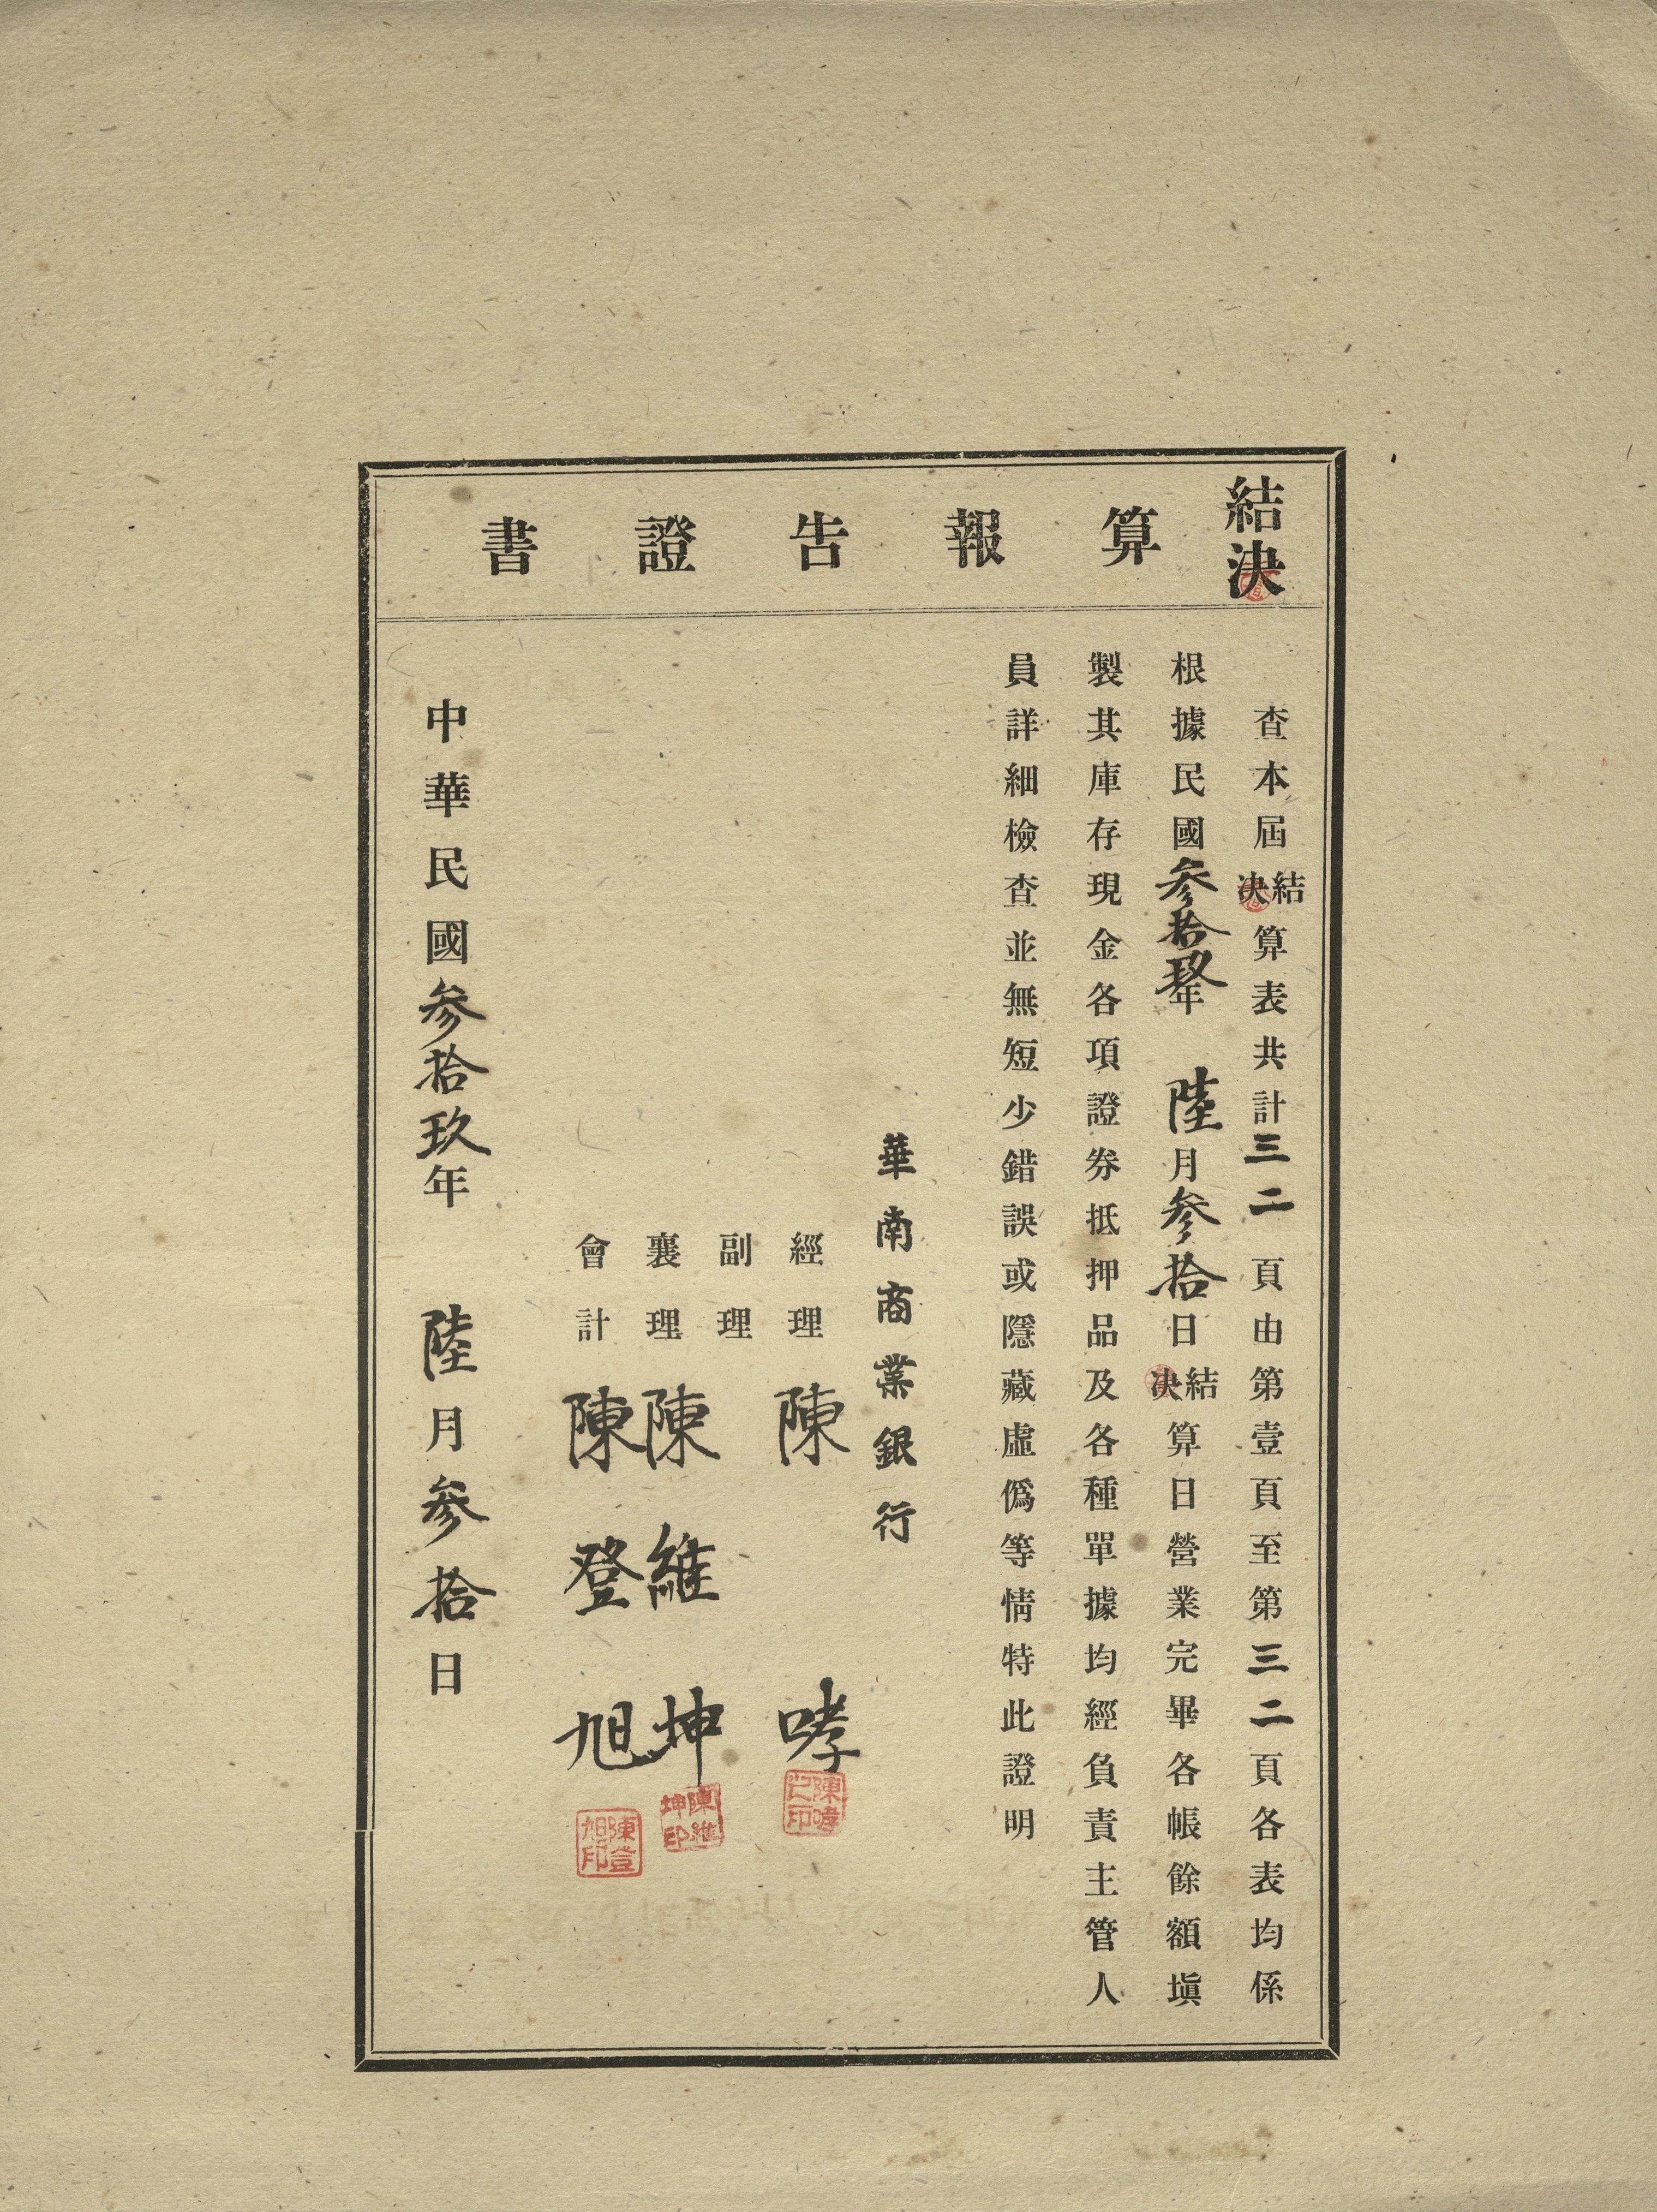 結決算報告證書
查本屆結決算表共計三二頁由第壹頁至第三二頁各表均係
根據民國叁拾玖年陸月叁拾日結決算日營業完畢各帳餘額塡
製其庫存現金各項證券抵押品及各種單據均經負責主管人
員詳細檢查並無短少錯誤或隱藏虛僞等情特此證明
華南商業銀行
經理 陳哮
陳哮之印
副理
襄理 陳維坤
陳維坤印
會計 陳登旭
陳登旭印
中華民國叁拾玖年陸月叁拾日